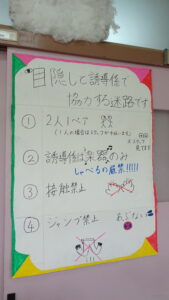 目隠しと誘導係で
協力する迷路です
① 2人1ペア
(1人の場合はスタッフがやります)
② 誘導係は楽器のみ
しゃべるの厳禁!!!!!
③ 接触禁止
④ ジャンプ禁止 あぶない